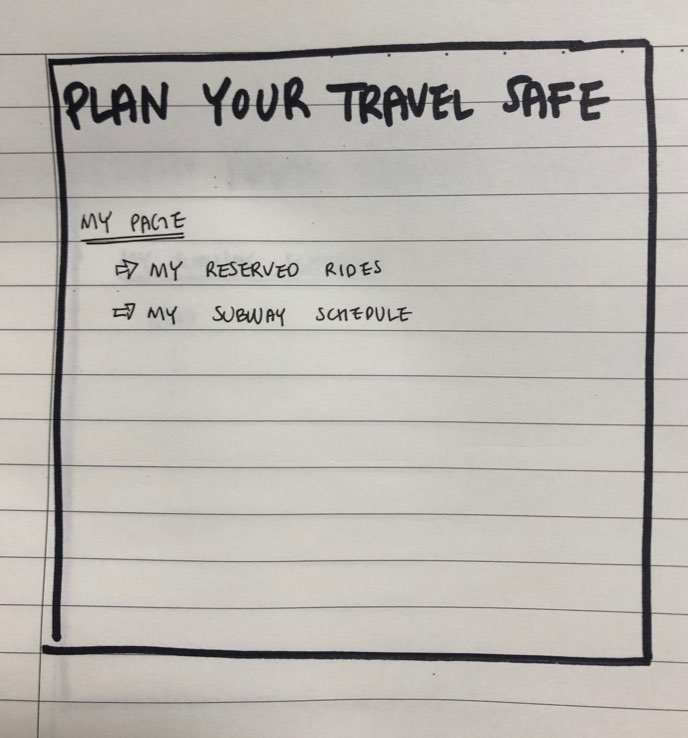 PLAN YOUR TRAVEL SAFE
MY PAGE
⇨ MY RESERVED RIDES
⇨ MY SUBWAY SCHEDULE